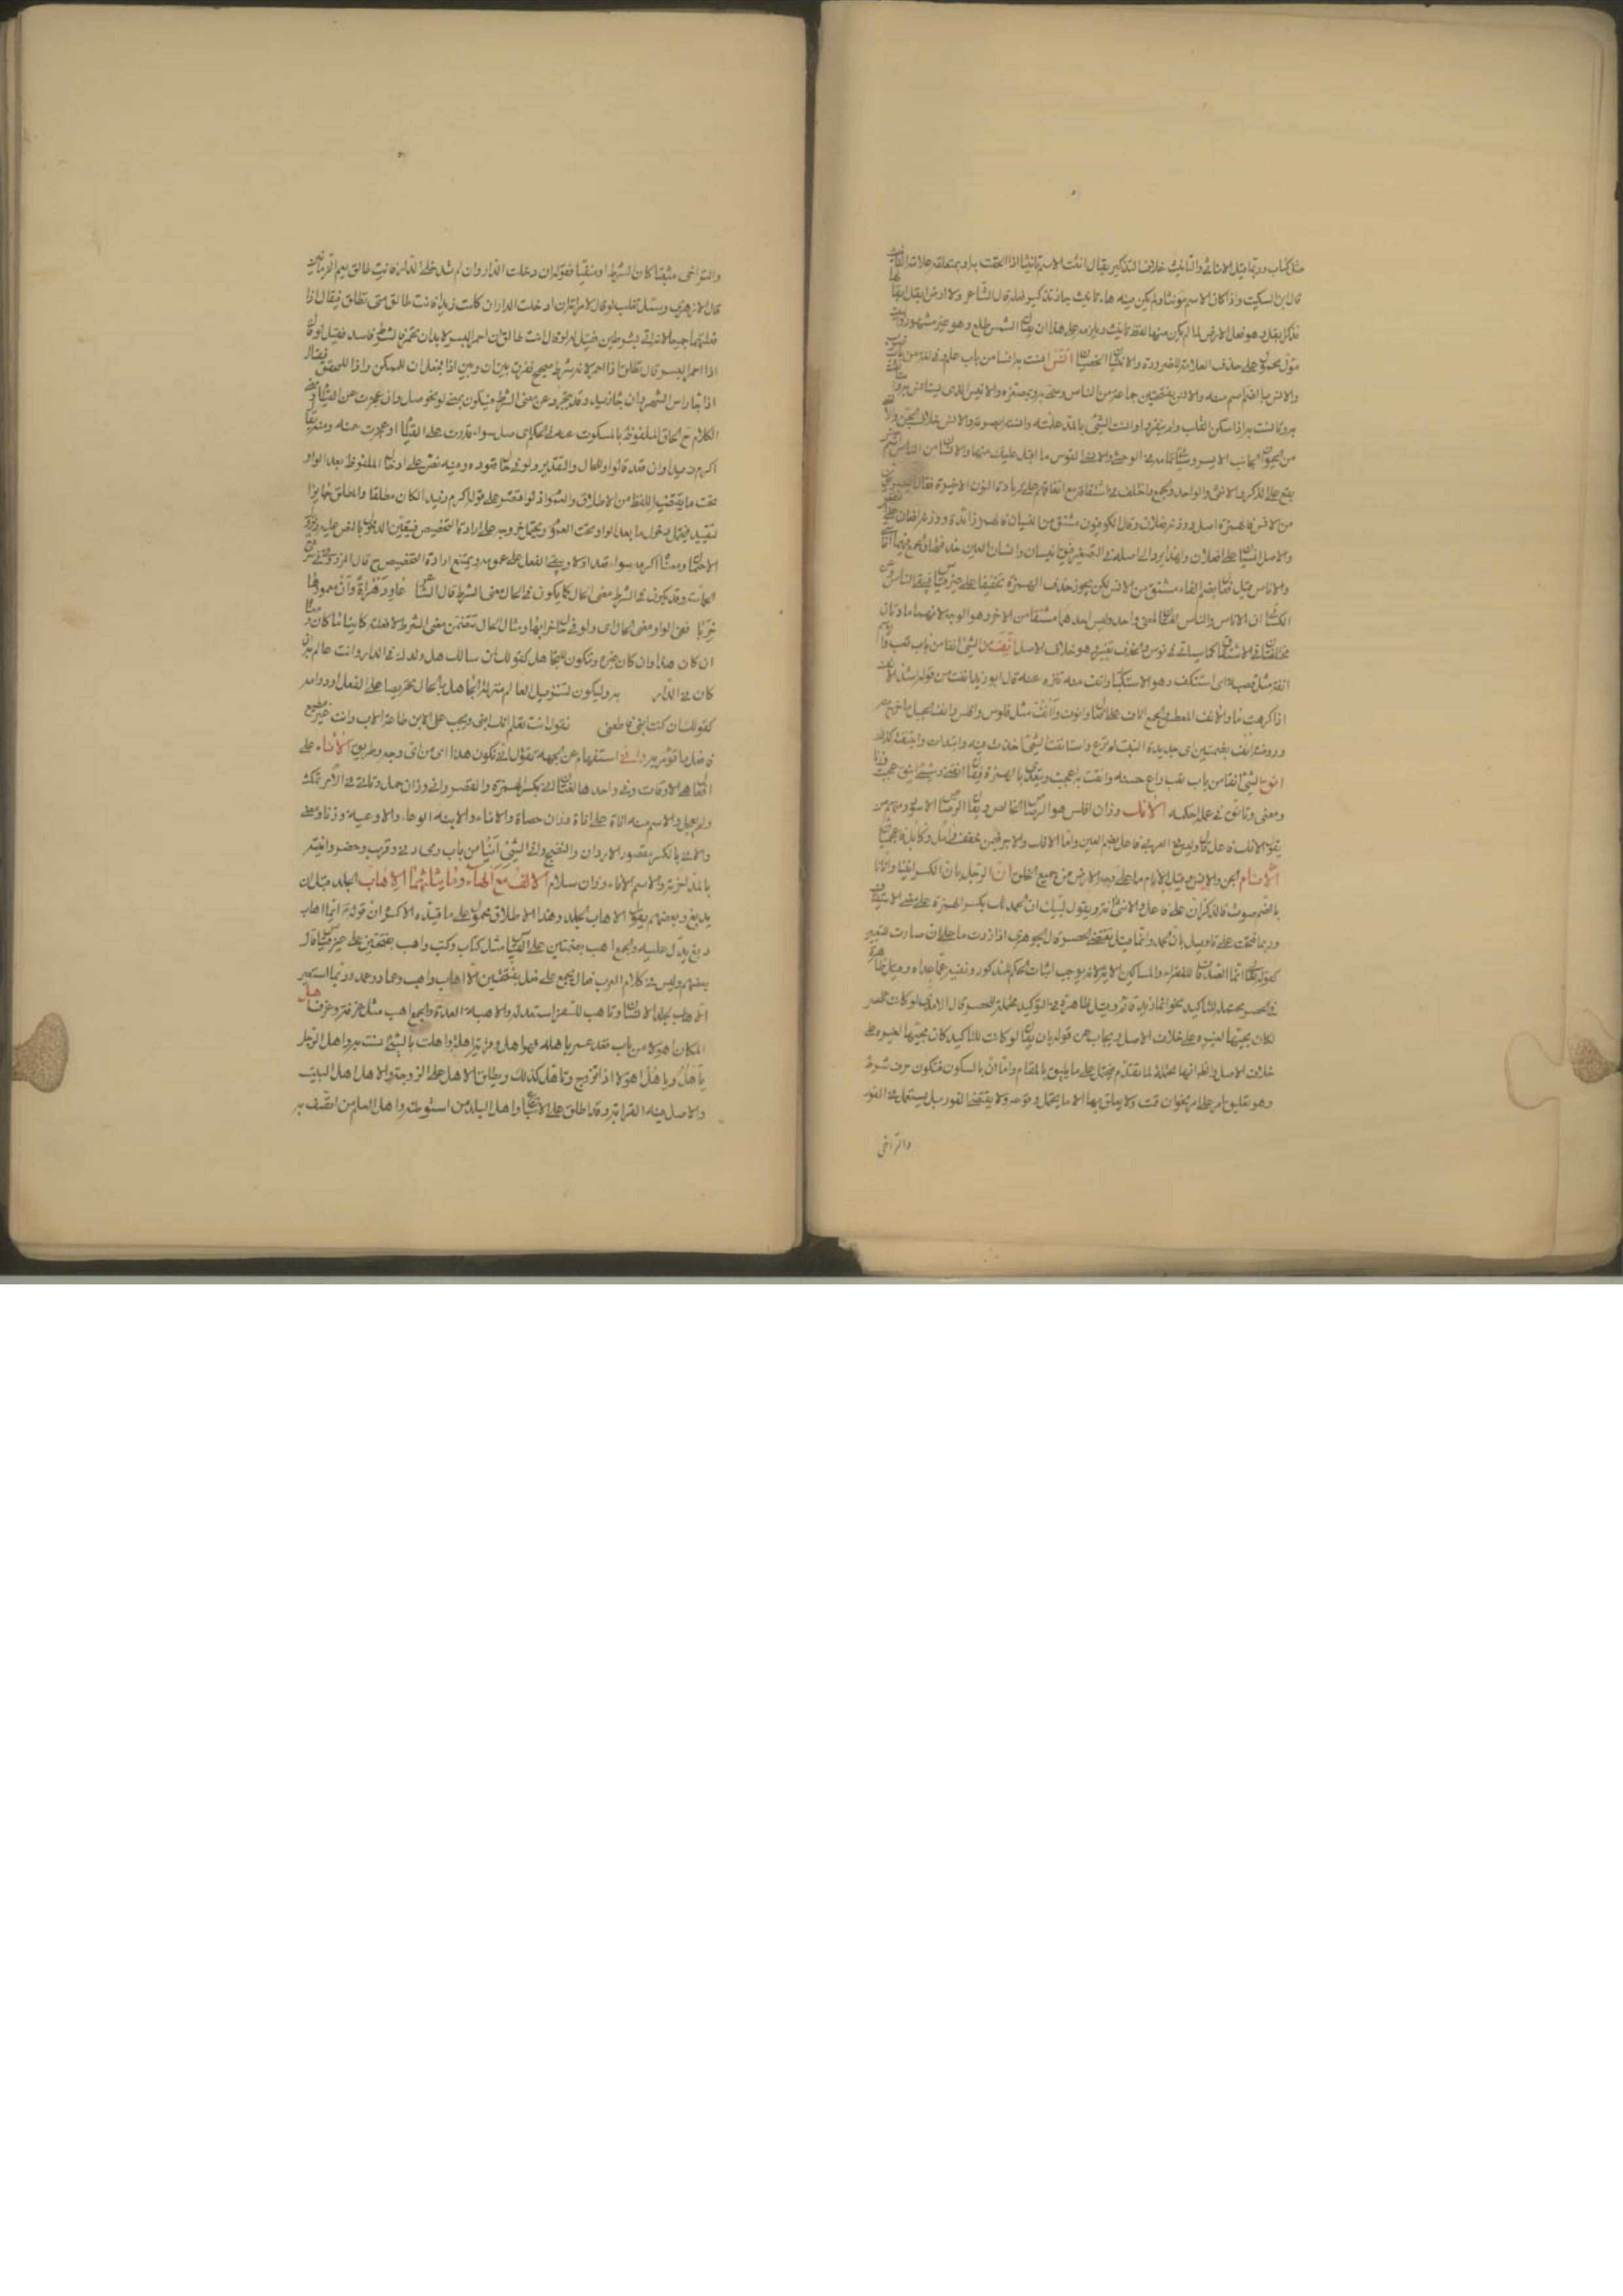 مثل كتاب وربما قيل الاناثى والتانيث خلاف التذكير يقال انثت الاسم تانيثا اذا الحقت به او بمتعلقه علامة التانيث
قال ابن السكيت واذا كان الاسم مؤنثا ولم يكن فيه هاء تانيث جاز تذكير فعله قال الشاعر ولا ارض ابقل ابقالها
فذكر ابقل وهو فعل الارض لما لم يكن فيها لفظ التانيث ويلزمه على هذا ان يقال الشمس طلع وهو غير مشهور والبيت
مؤول محمول على حذف العلامة للضرورة والانثيان الخصيتان انس انست به انسا من باب علم وفى لغة من باب ضرب
والانس بالضم اسم منه والانس بفتحتين جماعة من الناس وسمى به وبمصغره والانيس الذى يستانس به
به وتانست به اذا سكن القلب ولم ينفر وانست الشئ بالمد علمته وانسته ابصرته والانس خلاف الجن والانسى
من الحيوان الجانب الايسر وسياتى تمامه فى الوحشى والانسى من القوس ما اقبل عليك منها والانسان من الناس اسم جنس
يقع على الذكر والانثى والواحد والجمع واختلف فى اشتقاقه مع اتفاقهم على زيادة النون الاخيرة فقال البصريون
من الانس فالهمزة اصل ووزنه فعلان وقال الكوفيون مشتق من النسيان فالهمزة زائدة ووزنه افعان على النقص
والاصل انسيان على افعلان ولهذا يرد الى اصله فى التصغير فيقال انيسيان وانسان العين حدقتها والجمع فيهما اناسى
والاناس قيل فعال بضم الفاء مشتق من الانس لكن يجوز حذف الهمزة تخفيفا على غير قياس فيبقى الناس وعن
الكسائى ان الاناس والناس لغتان بمعنى واحد وليس احدهما مشتقا من الاخر وهو الوجه لانهما مادتان
مختلفتان فى الاشتقاق كما سياتى فى نوس والحذف تغيير وهو خلاف الاصل انف من الشئ انفا من باب تعب والاسم
انفة مثل قصبة اى استنكف وهو الاستكبار وانف منه تنزه عنه قال ابو زيد انفت من قوله اشد الانف
اذا كرهت ما قال والانف المعطس والجمع اناف على افعال وانوف وآنف مثل فلوس وافلس وانف الجبل ما خرج منه
وروضة انف بضمتين اى جديدة النبت لم ترع واستانفت الشئ اخذت فيه وابتدات وايتنفته كذلك
انق الشئ انقا من باب تعب راع حسنه وانقت به اعجبت ويتعدى بالهمزة فيقال انقنى وشئ انيق مثل عجيب وزنا
ومعنى وتانق فى عمله احكمه الآنك وزان افلس هو الرصاص الخالص ويقال الرصاص الاسود ومنهم من
يقول الانك فاعل قال وليس فى العربى فاعل بضم العين واما الانك والاجر فيمن خفف وامل وكابل فاعجميات
الانام الجن والانس وقيل الانام ما على وجه الارض من جميع الخلق ان الرجل يان بالكسر انينا وانانا
بالضم صوت فالذكر ان على فاعل والانثى انة وتقول لبيك ان الحمد لك بكسر الهمزة على معنى الاستئناف
وربما فتحت على تاويل بان الحمد وانما قيل تقتضى الحصر قال الجوهرى اذا زدت ما على ان صارت للتعيين
كقوله تعالى انما الصدقات للفقراء والمساكين الاية لانه يوجب اثبات الحكم للمذكور ونفيه عما عداه وقيل ظاهرة
فى الحصر محتملة للتاكيد نحو انما زيد قائم وقيل ظاهرة فى التوكيد محتملة للحصر قال الامدى لو كانت للحصر
لكان مجيئها لغيره على خلاف الاصل ويجاب عن قوله بان يقال لو كانت للتاكيد كان مجيئها لغيره على
خلاف الاصل والظاهر انها محتملة لما تقدم فتحمل على ما يليق بالمقام واما ان بالسكون فتكون حرف شرط
وهو تعليق امر على امر نحو ان قمت قمت ولا يعلق بها الا ما يحتمل وقوعه ولا يقتضى الفور بل يستعمل فى الفور
والتراخى
والتراخى مثبتا كان الشرط او منفيا فقوله ان دخلت الدار وان لم تدخلى الدار فانت طالق يعم الزمانين
قال الازهرى وسئل ثعلب لو قال لامراته ان دخلت الدار ان كلمت زيدا فانت طالق متى تطلق فقال اذا
فعلتهما جميعا لانه اتى بشرطين فقيل له لو قال انت طالق ان احمر البسر فقال هذه المسئلة محال لان البسر لا بد ان يحمر فالشرط فاسد فقيل لو قال
اذا احمر البسر قال تطلق اذا احمر لانه شرط صحيح ففرق بين ان وبين اذا فجعل ان للممكن واذا للمحقق فيقال
اذا جاء راس الشهر وان جاء زيد وقد تتجرد عن معنى الشرط فيكون بمعنى لو نحو صل وان عجزت عن القيام ومعنى
الكلام ح الحاق الملفوظ بالمسكوت عنه فى الحكم اى صل سواء قدرت على القيام او عجزت عنه ومنه يقال
اكرم زيدا وان قعد فالواو للحال والتقدير ولو فى حال قعوده وفيه نص على ادخال الملفوظ بعد الواو
تحت ما يقتضيه اللفظ من الاطلاق والعموم اذ لو اقتصر على قوله اكرم زيدا لكان مطلقا والمطلق جائز ان
تقييد فيحتمل دخول ما بعد الواو تحت العموم ويحتمل خروجه على ارادة التخصيص فيتعين الدخول بالنص عليه ويزول
الاحتمال ومعناه اكرمه سواء قعد اولا ويبقى الفعل على عمومه ويمتنع ارادة التخصيص ح قال المرزوقى فى شرح
الحماسة وقد يكون فى الشرط معنى الحال كما يكون فى الحال معنى الشرط قال الشاعر عاود هراة وان معمورها
خربا ففى الواو معنى الحال اى ولو فى حال خرابها ومثال الحال تتضمن معنى الشرط لافعلنه كائنا ما كان والمعنى
ان كان هذا وان كان غيره وتكون للتجاهل كقولك لمن سالك هل ولدك فى الدار وانت عالم به ان
كان فى الدار به وليكون لتنزيل العالم منزلة الجاهل بالحال تحريضا على الفعل او دوامه
كقولك ان كنت ابنى فاطعنى تقول انت تعلم انك ابنى ويجب على الابن طاعة الاب وانت غير مطيع
فافعل ما تؤمر به وانى استفهام عن الجهة تقول انى تكون هذا اى من اى وجه وطريق الاناء على
افعال هى الاوقات وفى واحدها لغتان انى بكسر الهمزة والقصر وانى وزان حمل وتانى فى الامر تمكث
ولم يعجل والاسم منه اناة وزان حصاة والاناء والانية الوعاء والاوعية وزنا ومعنى
والانى بالكسر مقصور الادراك والنضج وانى الشئ انيا من باب رمى دنى وقرب وحضر وانيته
بالمد اخرته والاسم الاناء وزان سلام الالف مع الهاء وما يثلثهما الاهاب الجلد قبل ان
يدبغ وبعضهم يقول الاهاب الجلد وهذا الاطلاق محمول على ما قيده الاكثر فان قوله ع م ايما اهاب
دبغ يدل عليه والجمع اهب بضمتين على القياس مثل كتاب وكتب واهب بفتحتين على غير قياس قال
بعضهم وليس فى كلام العرب فعال يجمع على فعل بفتحتين الا اهاب واهب وعماد وعمد وربما استعير
الاهاب لجلد الانسان وتاهب للسفر استعد له والاهبة العدة والجمع اهب مثل غرفة وغرف اهل
المكان اهولا من باب قعد عمر باهله فهو اهل وقرية اهلة واهلت بالشئ انست به واهل الرجل
ياهل وياهل اهولا اذا تزوج وتاهل كذلك ويطلق الاهل على الزوجة والاهل اهل البيت
والاصل فيه القرابة وقد اطلق على الاتباع واهل البلد من استوطنه واهل العلم من اتصف به